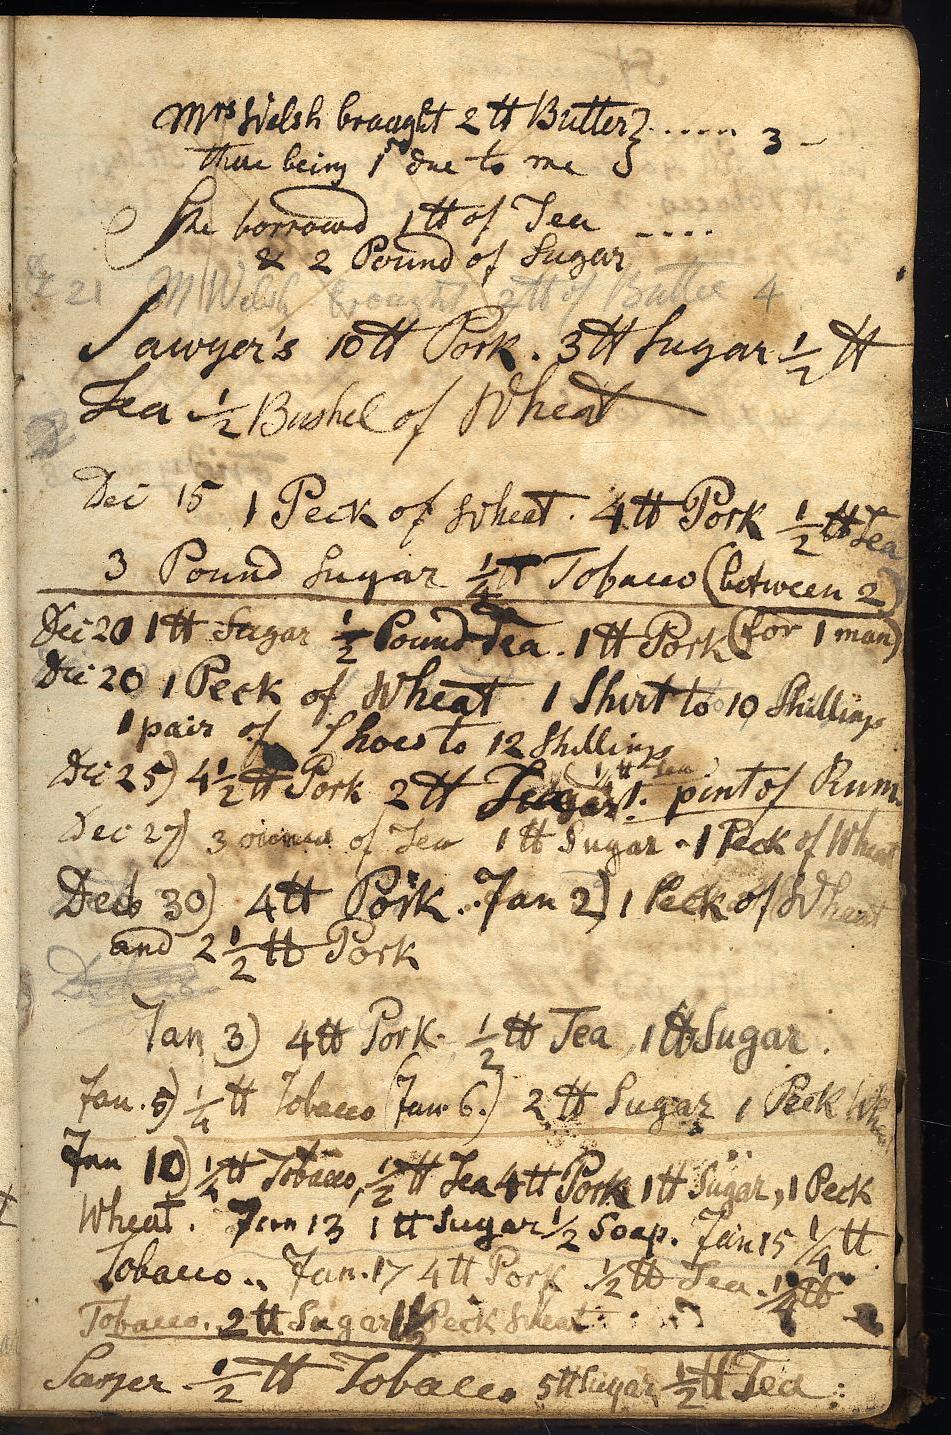 Mrs Welsh brought 2 tt Butter } ..... 3 -
there being 1 due to me }
She borrowd 1 tt of Tea
& 2 Pound of Sugar ----
21 M Welsh brought 2 tt of Butter 4
Sawyer's 10 tt Pork . 3 tt Sugar 1/2 tt
Tea 1/2 Bushel of Wheat
Dec 15 1 Peck of Wheat . 4 tt Pork 1/2 tt Tea
3 Pound Sugar 1/4 tt Tobacco (between 2)
Dec 20 1 tt Sugar 1/2 Pound Tea . 1 tt Pork (for 1 man)
Dec 20) 1 Peck of Wheat 1 Shirt to 10 Shillings
1 pair of Shoes to 12 Shillings
Dec 25) 4 1/2 tt Pork 2 tt Sugar 1/4 tt Tea 1. pint of Rum
Dec 27) 3 ounces of Tea 1 tt Sugar - 1 Peck of Wheat
Decb 30) 4 tt Pork . Jan 2) 1 Peck of Wheat
and 2 1/2 tt Pork
Jan 3) 4 tt Pork - 1/2 tt Tea , 1 tt Sugar .
Jan. 5) 1/4 tt Tobacco (Jan. 6.) 2 tt Sugar 1 Peck Wheat
Jan 10) 1/4 tt Tobacco, 1/2 tt Tea 4 tt Pork 1 tt Sugar, 1 Peck
Wheat . Jan 13 1 tt Sugar 1/2 Soap. Jan 15 1/4 tt
Tobacco .. Jan. 17 4 tt Pork 1/2 tt Tea . 1/4 tt
Tobacco. 2 tt Sugar Peck Wheat
Sawyer 1/2 tt Tobacco 5 tt Sugar 1/2 tt Tea :